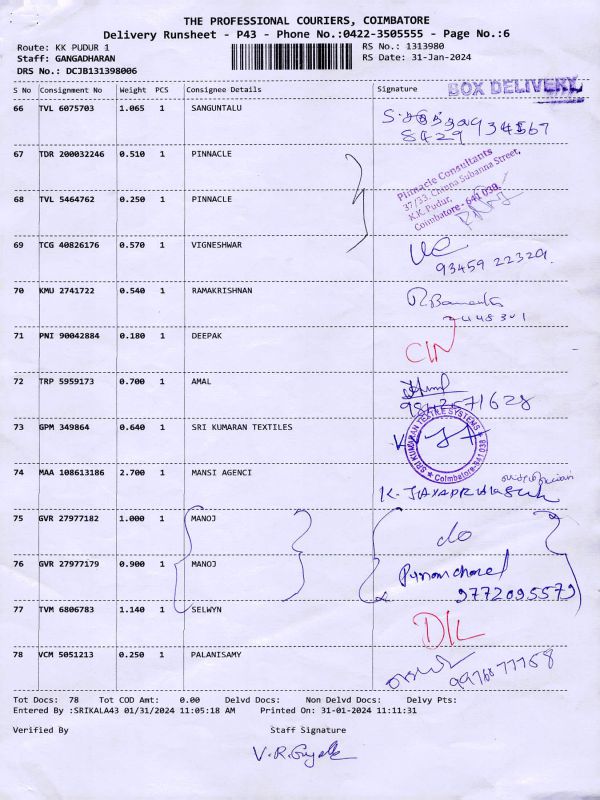 THE PROFESSIONAL COURIERS, COIMBATORE
Delivery Runsheet - P43 - Phone No.:0422-3505555 - Page No.:6
Route: KK PUDUR 1 RS No.: 1313980
Staff: GANGADHARAN RS Date: 31-Jan-2024
DRS No.: DCJB131398006
S No Consignment No Weight PCS Consignee Details Signature BOX DELIVERY
66 TVL 6075703 1.065 1 SANGUNTALU
67 TDR 200032246 0.510 1 PINNACLE
Pinnacle Consultants
37/33, Chinna Subanna Street,
K.K. Pudur,
Coimbatore - 641 038.
68 TVL 5464762 0.250 1 PINNACLE
69 TCG 40826176 0.570 1 VIGNESHWAR
93459 22329
70 KMU 2741722 0.540 1 RAMAKRISHNAN
71 PNI 90042884 0.180 1 DEEPAK
CIN
72 TRP 5959173 0.700 1 AMAL
9842571628
73 GPM 349864 0.640 1 SRI KUMARAN TEXTILES
SRI KUMARAN TEXTILE SYSTEMS
Coimbatore-641 038
74 MAA 108613186 2.700 1 MANSI AGENCI
75 GVR 27977182 1.000 1 MANOJ
do
76 GVR 27977179 0.900 1 MANOJ
9772095579
77 TVM 6806783 1.140 1 SELWYN
D/L
78 VCM 5051213 0.250 1 PALANISAMY
Tot Docs: 78 Tot COD Amt: 0.00 Delvd Docs: Non Delvd Docs: Delvy Pts:
Entered By :SRIKALA43 01/31/2024 11:05:18 AM Printed On: 31-01-2024 11:11:31
Verified By Staff Signature